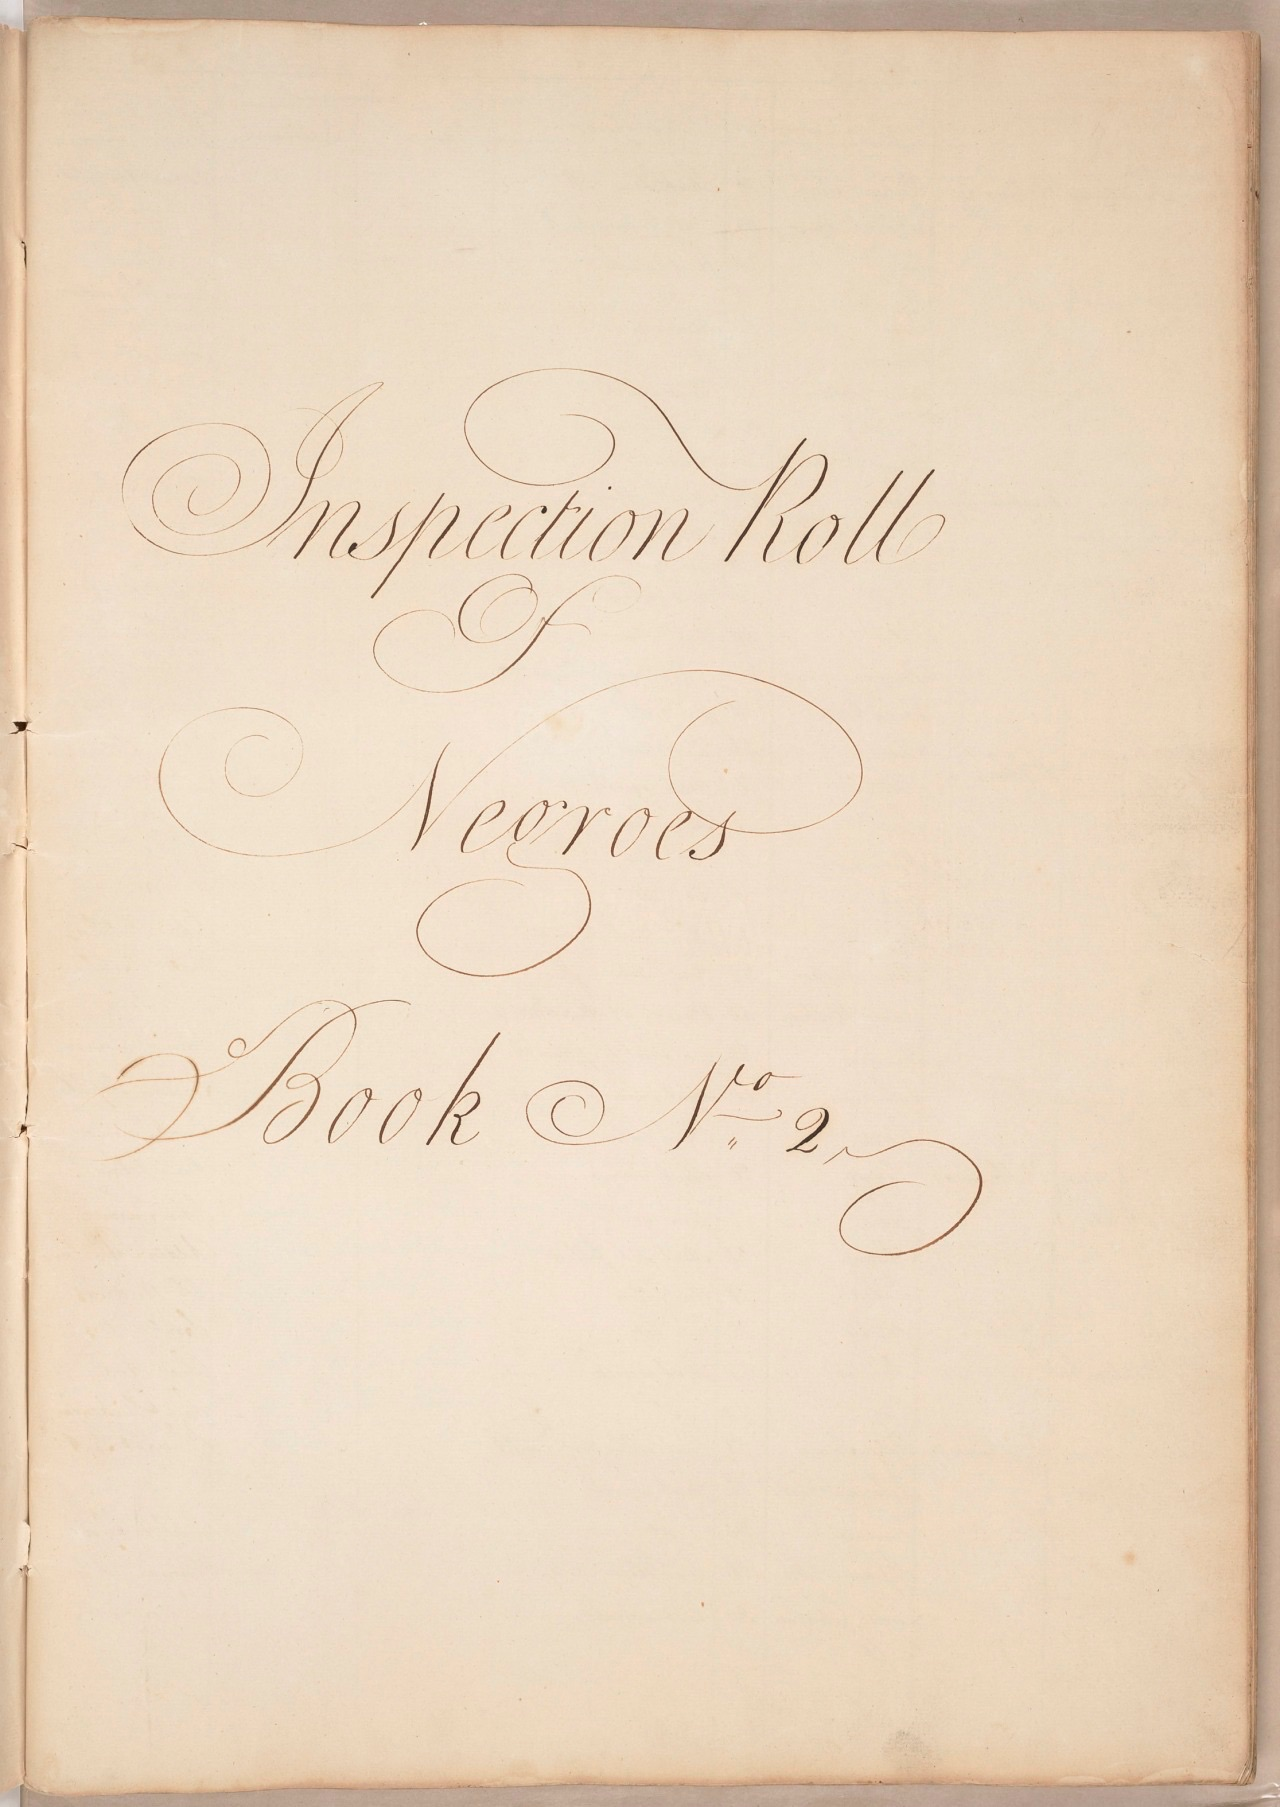 Inspection Roll
of
Negroes
Book No. 2